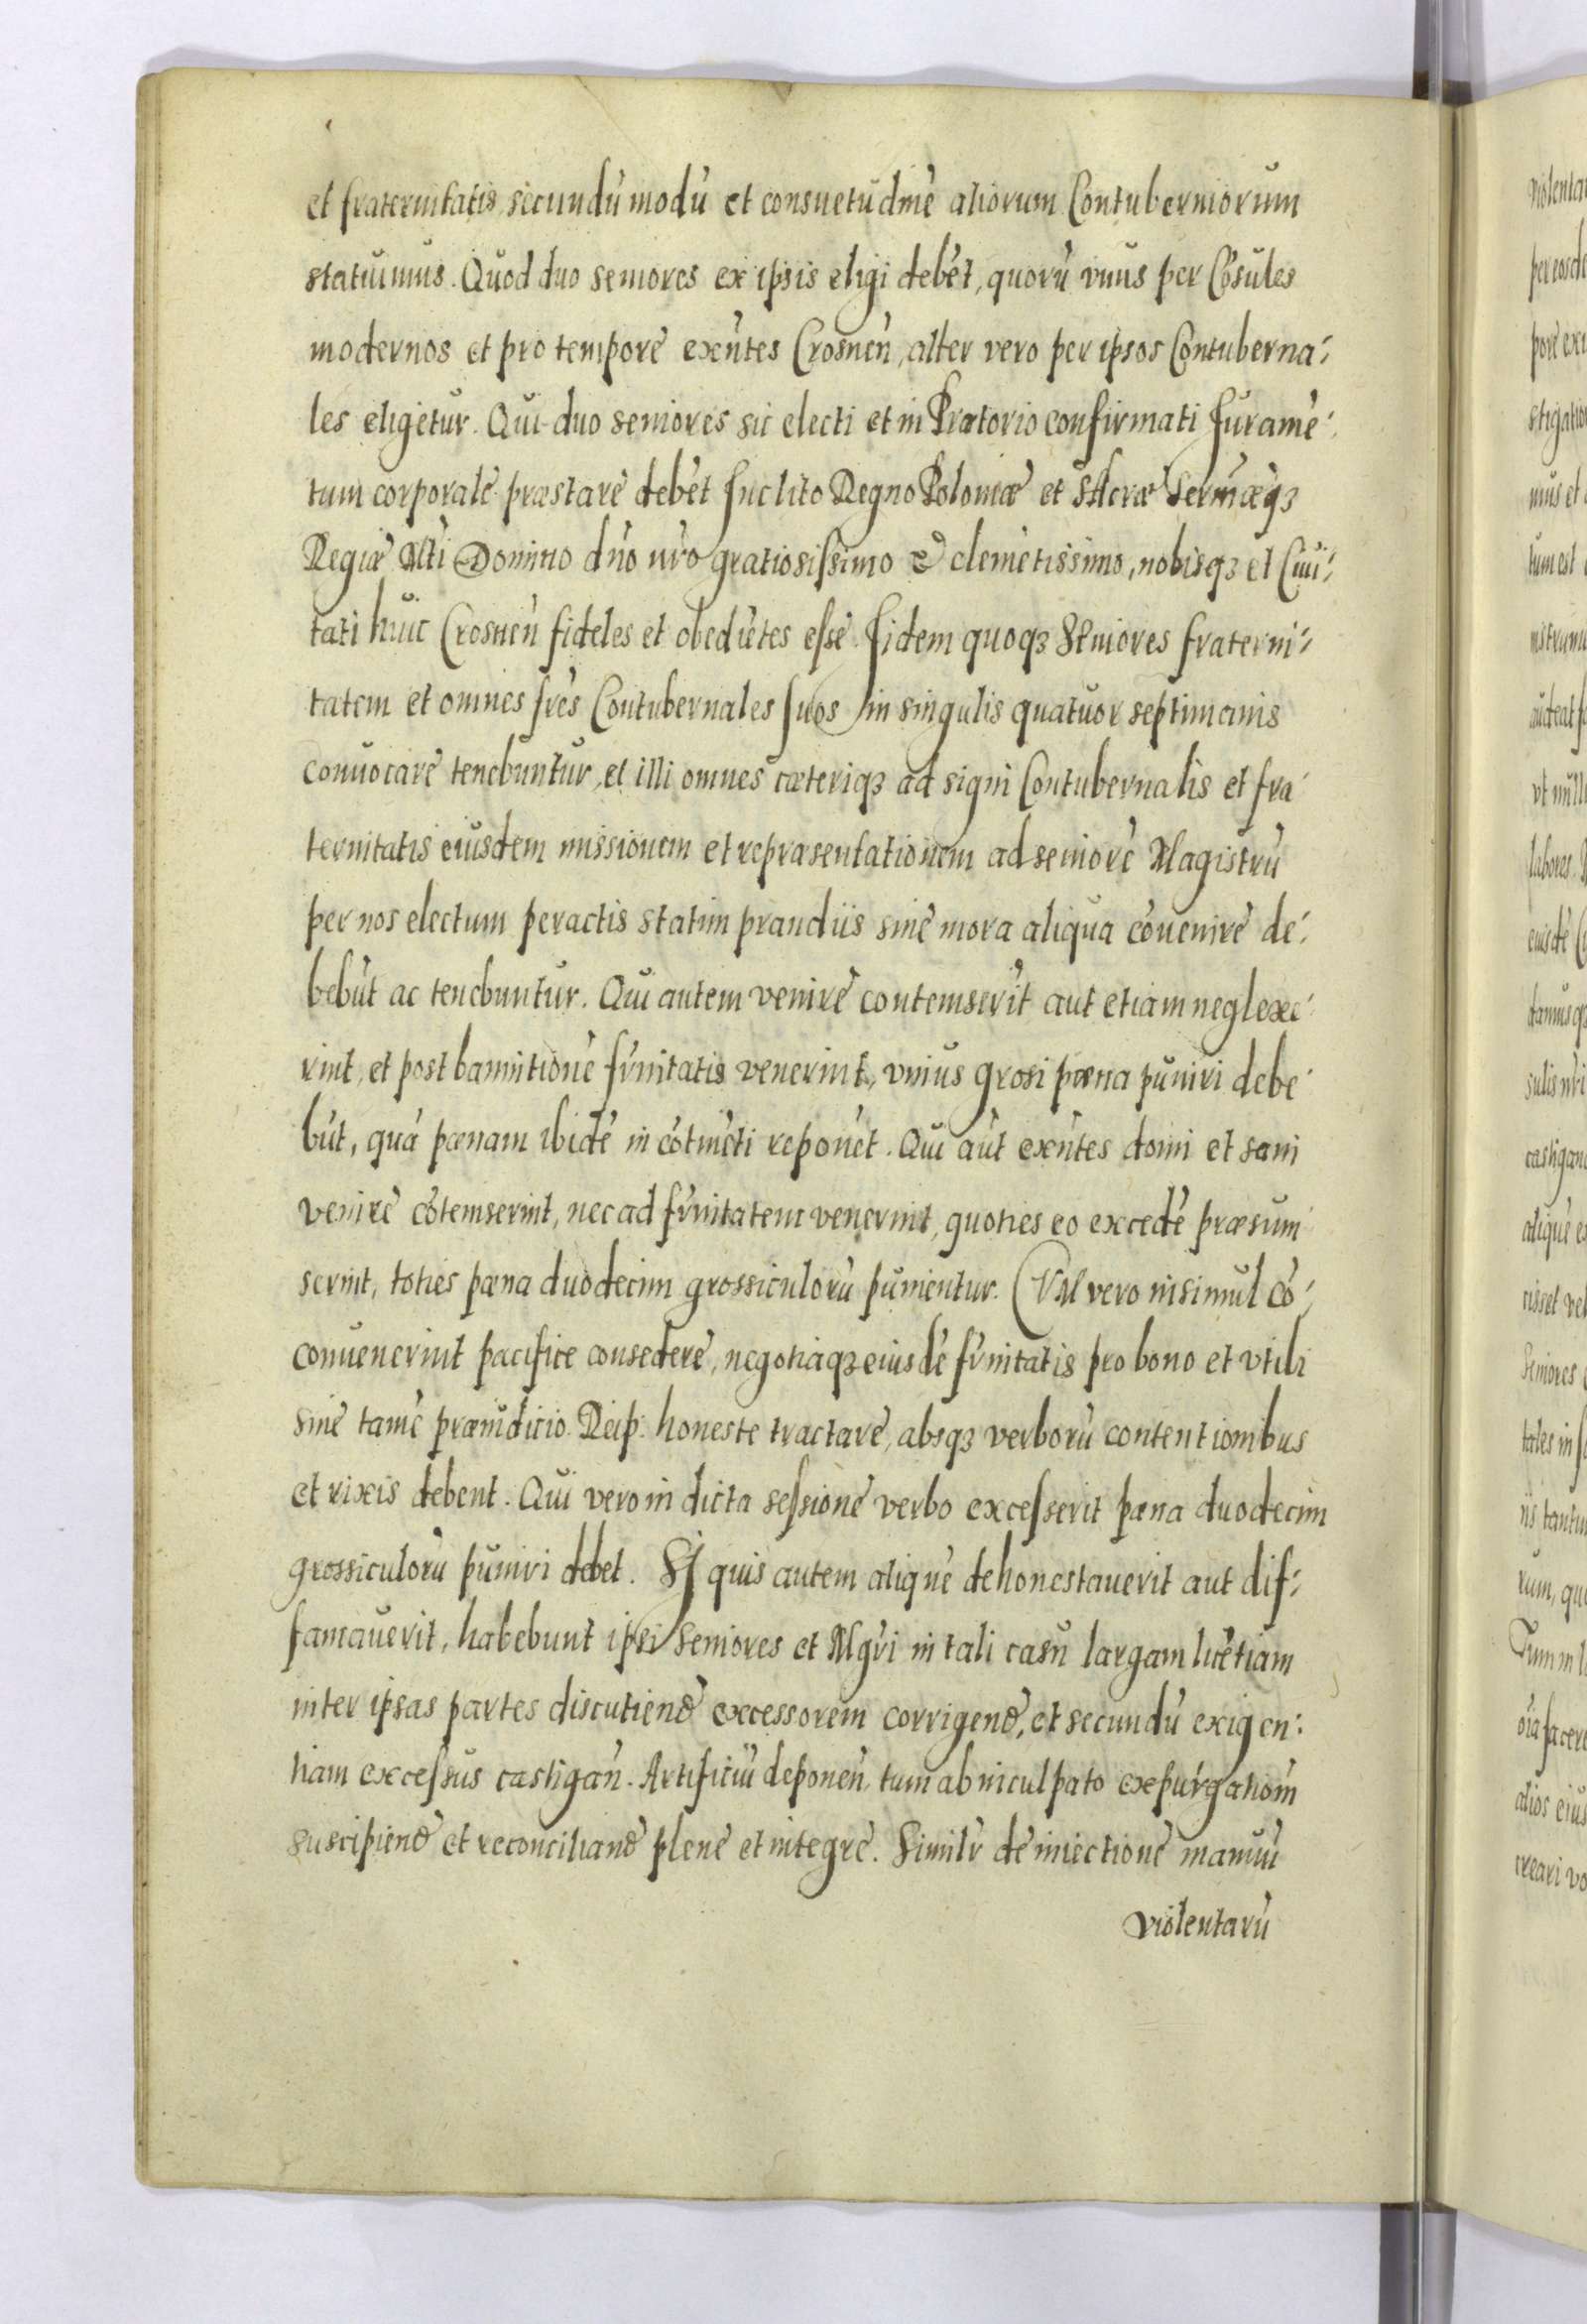 et fraternitatis secundù modù et consuetudinè aliorum Contuberniorum
statuimus. Quod duo seniores ex ipsis eligi debèt, quorù vnus per Cõsules
modernos et pro tempore exñtes Crosneñ, alter vero per ipsos Contuberna-
les eligetur. Qui duo seniores sic electi et in Prætorio confirmati Juramè-
tum corporale præstare debèt Inclito Regno Poloniæ et SAcræ Sermæqȝ
Regiæ Mti Domino dño nro gratiosissimo & clemètissimo, nobisqȝ et Ciui-
tati huic Crosneñ fideles et obediètes esse. Iidem quoqȝ SEniores fraterni-
tatem et omnes frès Contubernales suos in singulis quatuor septimanis
conuocare tenebuntur, et illi omnes cæteriqȝ ad signi Contubernalis et fra-
ternitatis eiusdem missionem et repræsentationem ad seniorè Magistrù
per nos electum peractis statim prandiis sine mora aliqua cõuenire de-
bebùt ac tenebuntur. Qui autem venire contemserìt aut etiam neglexe-
rint, et post bannitionè frnitatis venerint, vnius grosi pæna puniri debe-
bùt, quà pænam ibidè in cõtinèti reponèt. Qui aùt exñtes domi et sani
venire cõtemserint, nec ad frnitatem venerint, quoties eo excedè præsum-
serint, toties pæna duodecim grossiculorù punientur. CVM vero in simul cõ-
conuenerint pacifice consedere, negotiaqȝ eiusdè frnitatis pro bono et vtili
sine tamè præiudicio Reip. honeste tractare, absqȝ verborù contentionibus
et rixis debent. Qui vero in dicta sessione verbo excesserit pæna duodecim
grossiculorù puniri debet. SI quis autem aliquè dehonestauerit aut dif-
famauerit, habebunt ipsi Seniores et Mgri in tali casu largam licètiam
inter ipsas partes discutiend excessorem corrigend, et secundù exigen-
tiam excessus castigañ. Artificiù deponeñ tum ab inculpato expurgationm
suscipiend et reconciliand plene et integre. Similr de iniectione manuù
violentarù